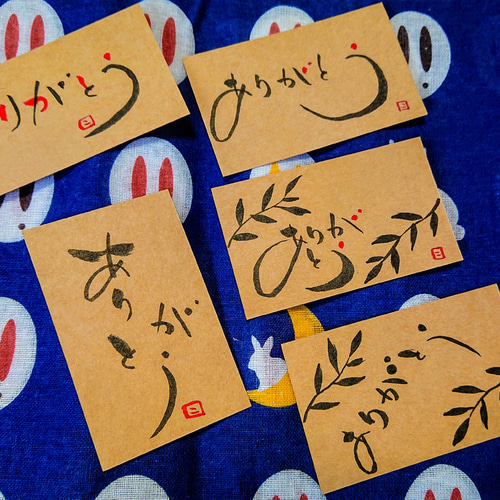 ありがとう
ありがとう
ありが
とう
ありが
とう
ありがとう